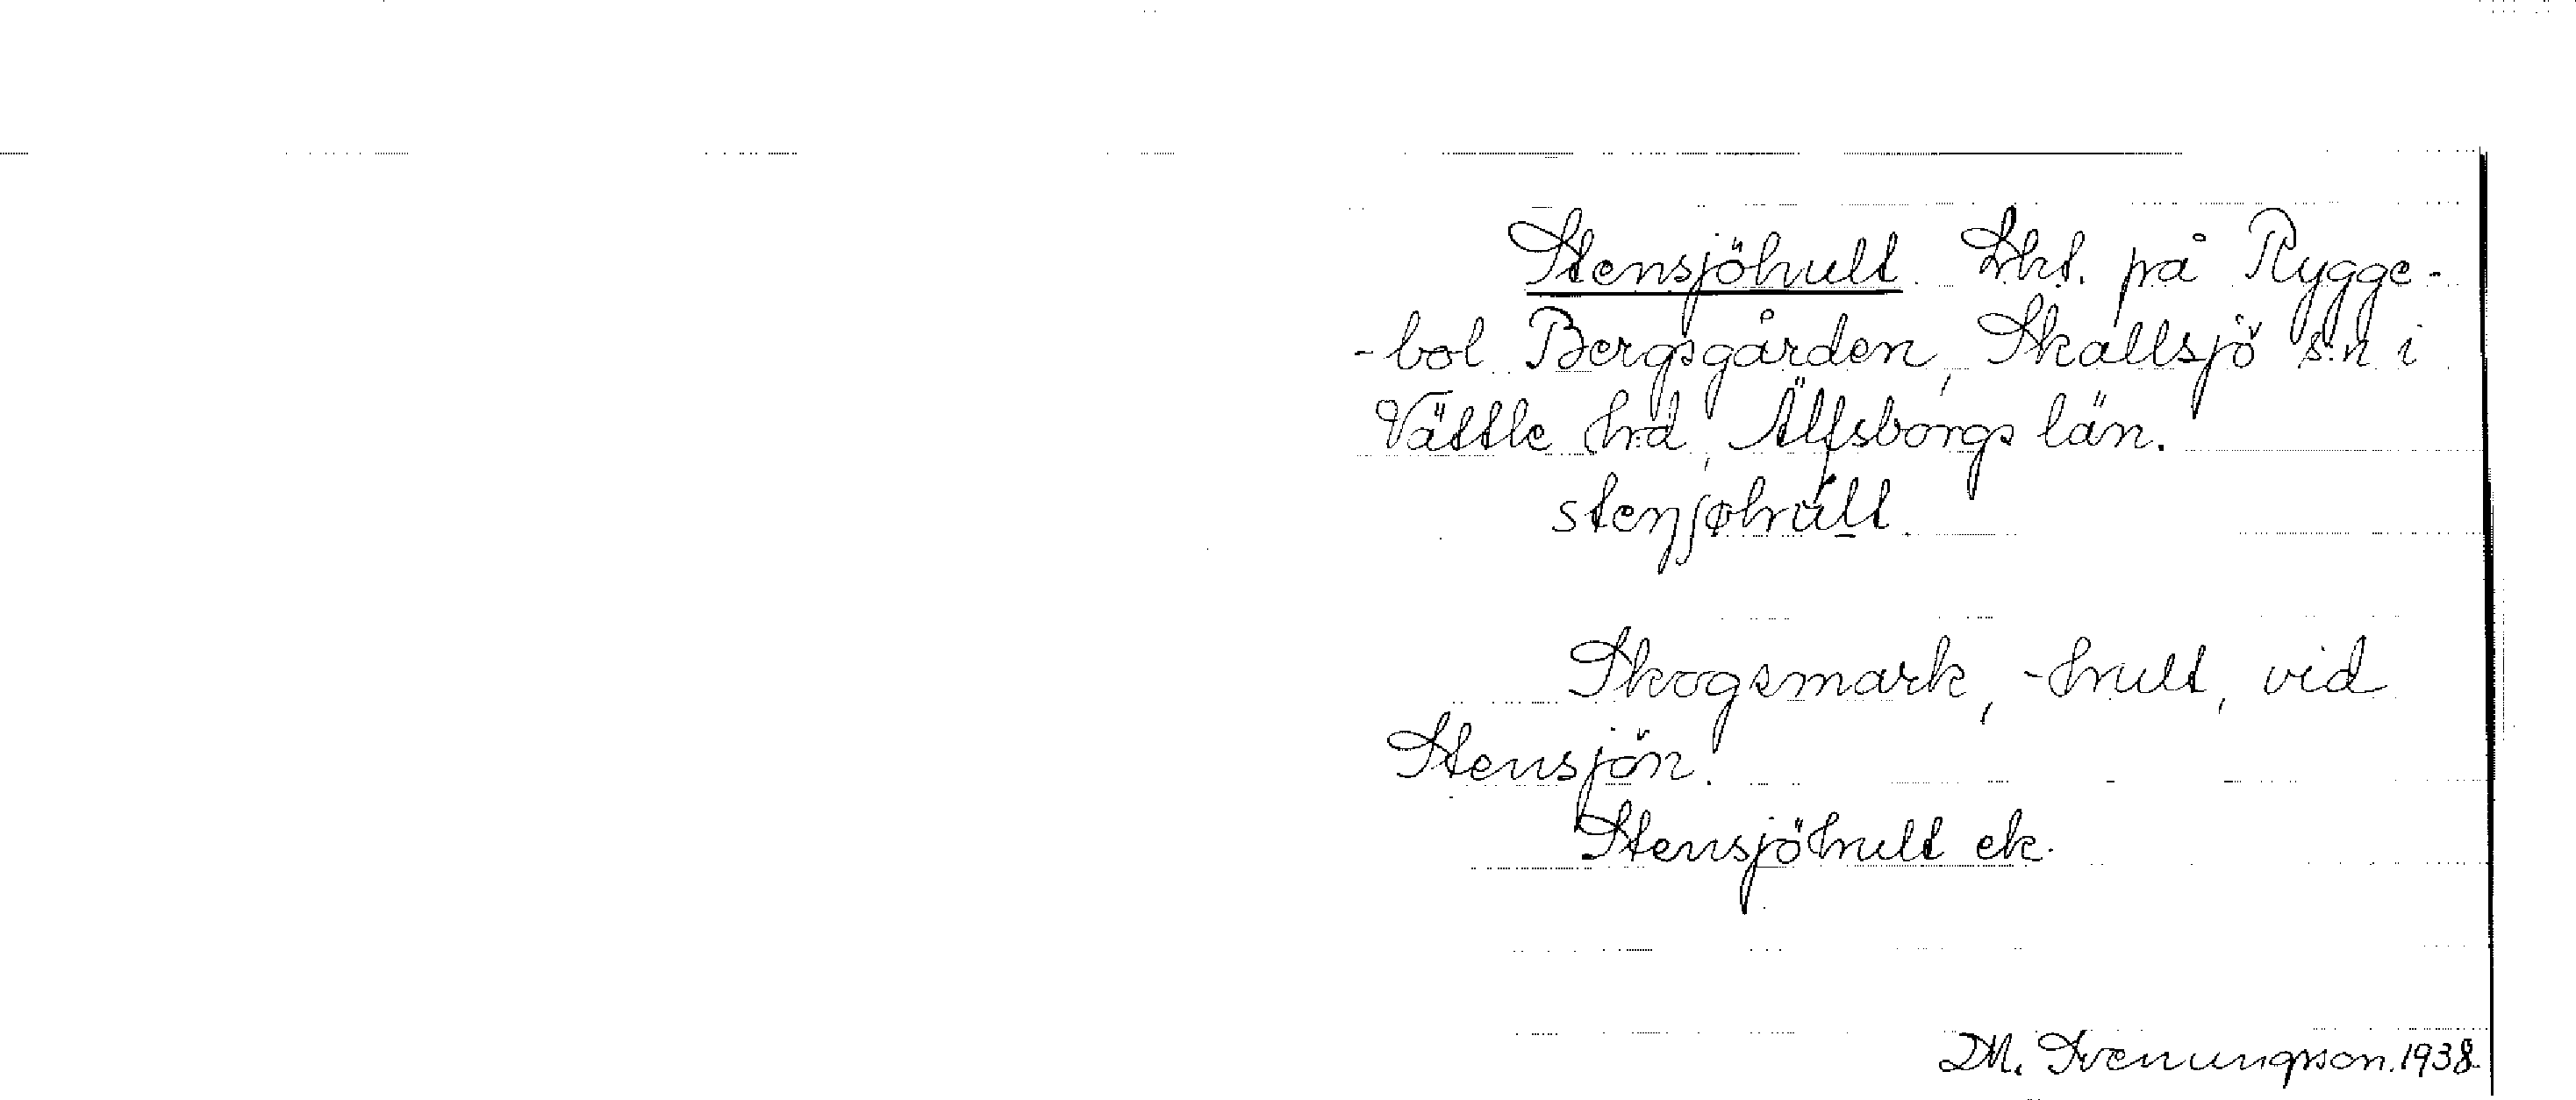 Stensjöhult. Trkt. på Rygge-
-bol Bergsgården, Skallsjö s:n i
Vättle hd, Älfsborgs län.
stenʃøhult.
Skogsmark, -hult, vid
Stensjön.
Stensjöhult ek.
M. Svenungsson. 1938